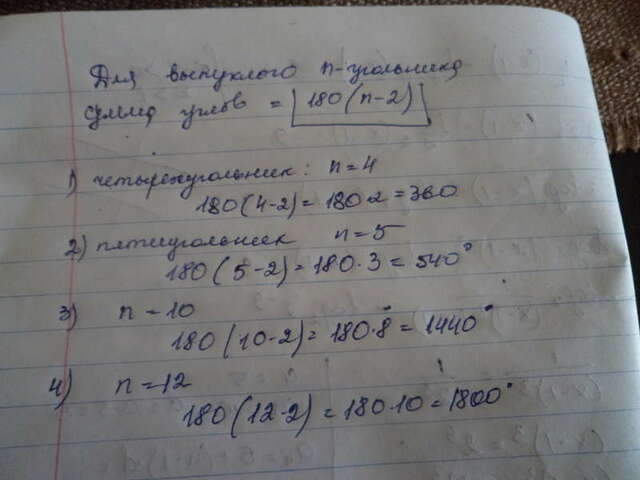 Для выпуклого n-угольника
сумма углов = 180(n-2)
1) четырехугольник: n=4
180(4-2)=180·2=360
2) пятиугольник n=5
180(5-2)=180·3=540°
3) n=10
180(10-2)=180·8=1440°
4) n=12
180(12-2)=180·10=1800°